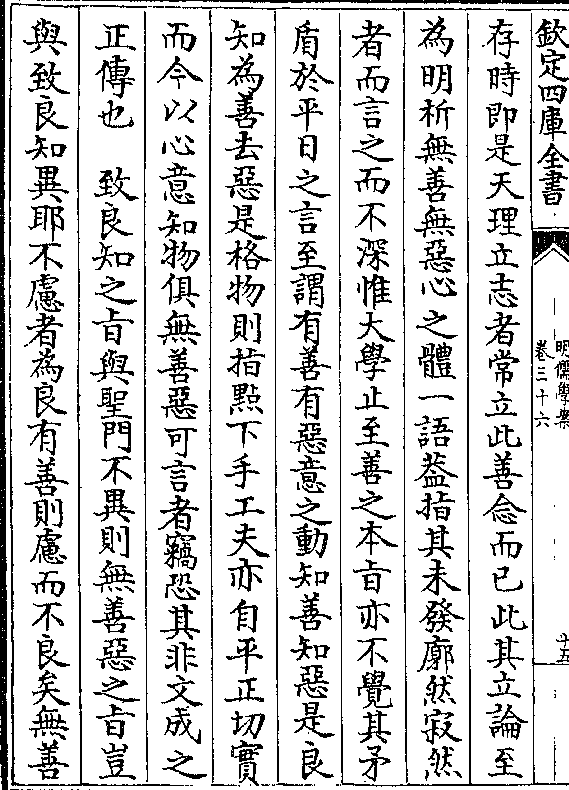 欽定四庫全書
明儒學案
卷三十六
十五
存時即是天理立志者常立此善念而已此其立論至
為明析無善無惡心之體一語葢指其未發廓然寂然
者而言之而不深惟大學止至善之本旨亦不覺其矛
盾於平日之言至謂有善有惡意之動知善知惡是良
知為善去惡是格物則指點下手工夫亦自平正切實
而今以心意知物俱無善惡可言者竊恐其非文成之
正傳也　致良知之旨與聖門不異則無善惡之旨豈
與致良知異耶不慮者為良有善則慮而不良矣無善